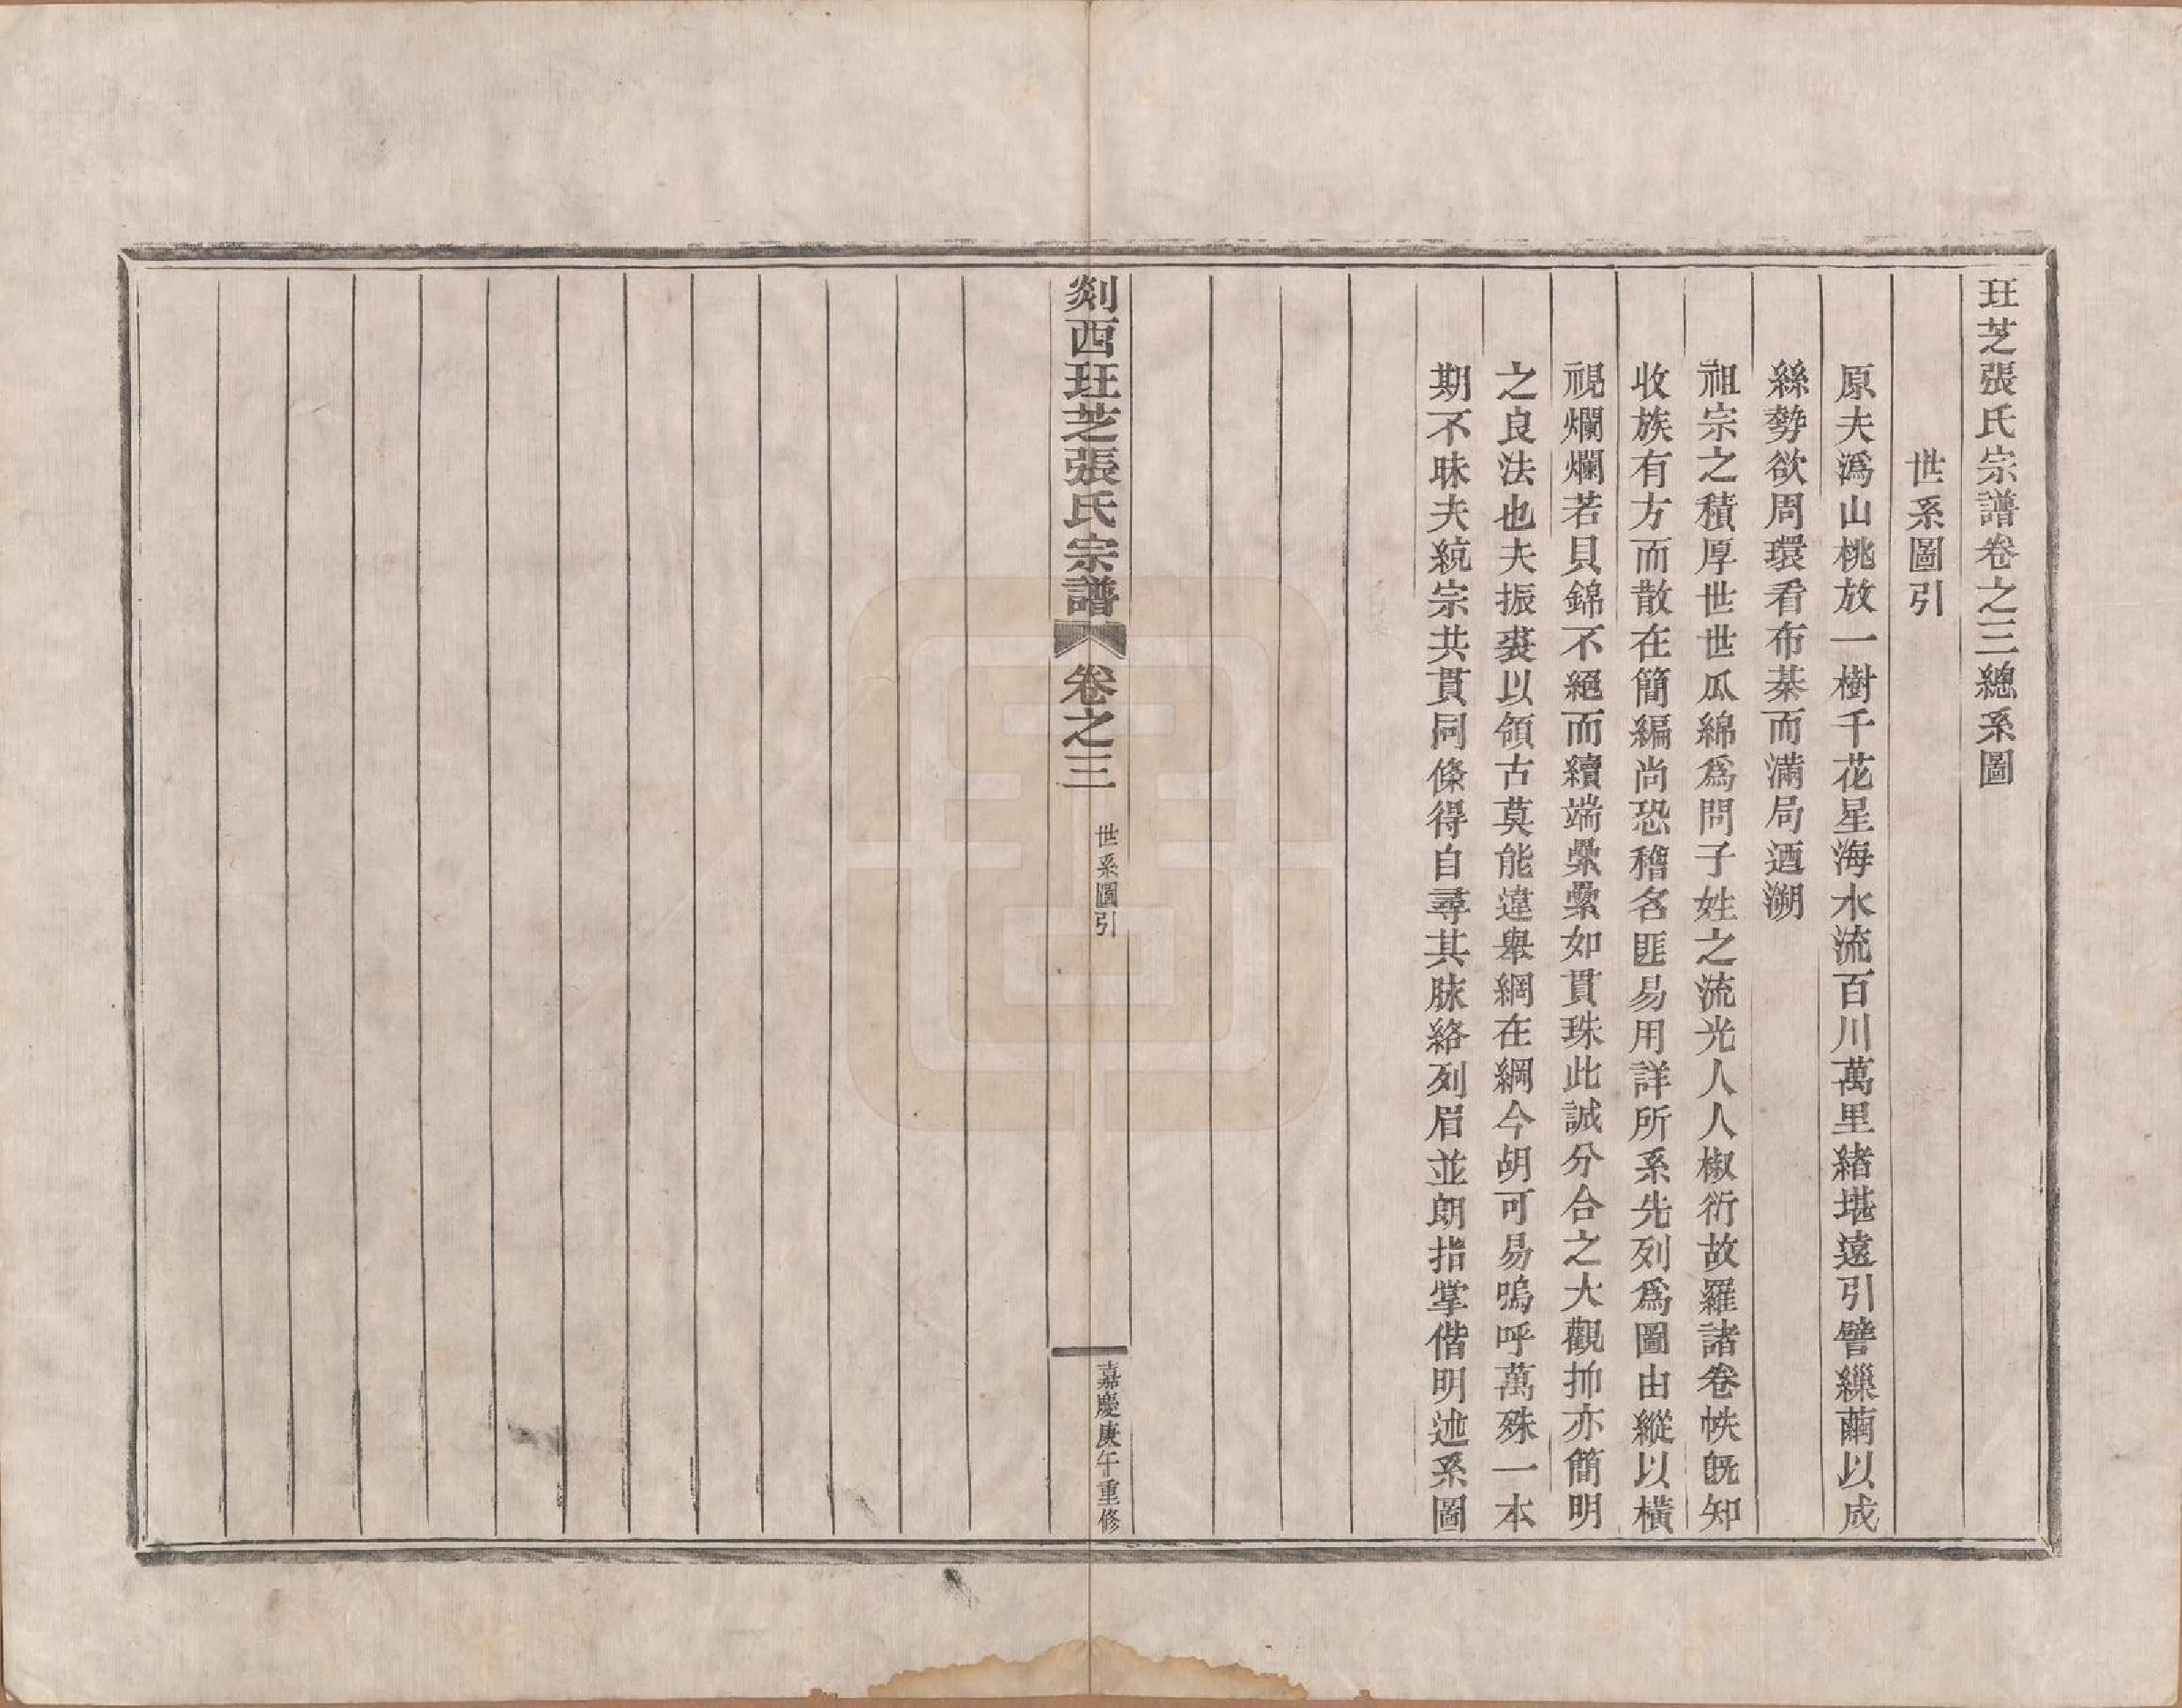 玨芝張氏宗譜卷之三總系圖
世系圖引
原夫潙山桃放一樹千花星海水流百川萬里緒堪遠引譬繅繭以成
絲勢欲周環看布棊而滿局迺溯
祖宗之積厚世世瓜綿爲問子姓之流光人人椒衍故羅諸卷帙旣知
收族有方而散在簡編尚恐稽名匪易用詳所系先列爲圖由縱以橫
視爛爛若貝錦不絕而續端纍纍如貫珠此誠分合之大觀抑亦簡明
之良法也夫振裘以領古莫能違舉網在綱今胡可易嗚呼萬殊一本
期不昧夫統宗共貫同條得自尋其脉絡列眉並朗指掌偕明述系圖
剡西玨芝張氏宗譜 卷之三 世系圖引 嘉慶庚午重修